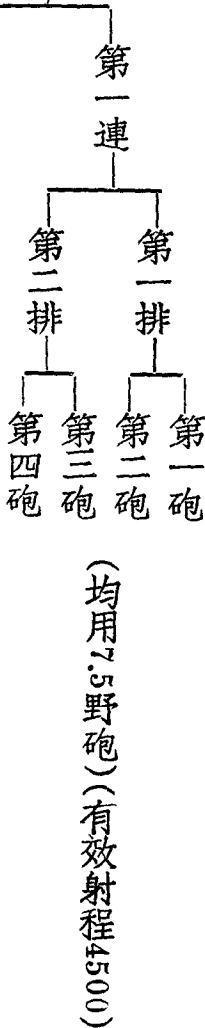 第一連
第一排
第二排
第一砲
第二砲
第三砲
第四砲
(均用7.5野砲)(有效射程4500)